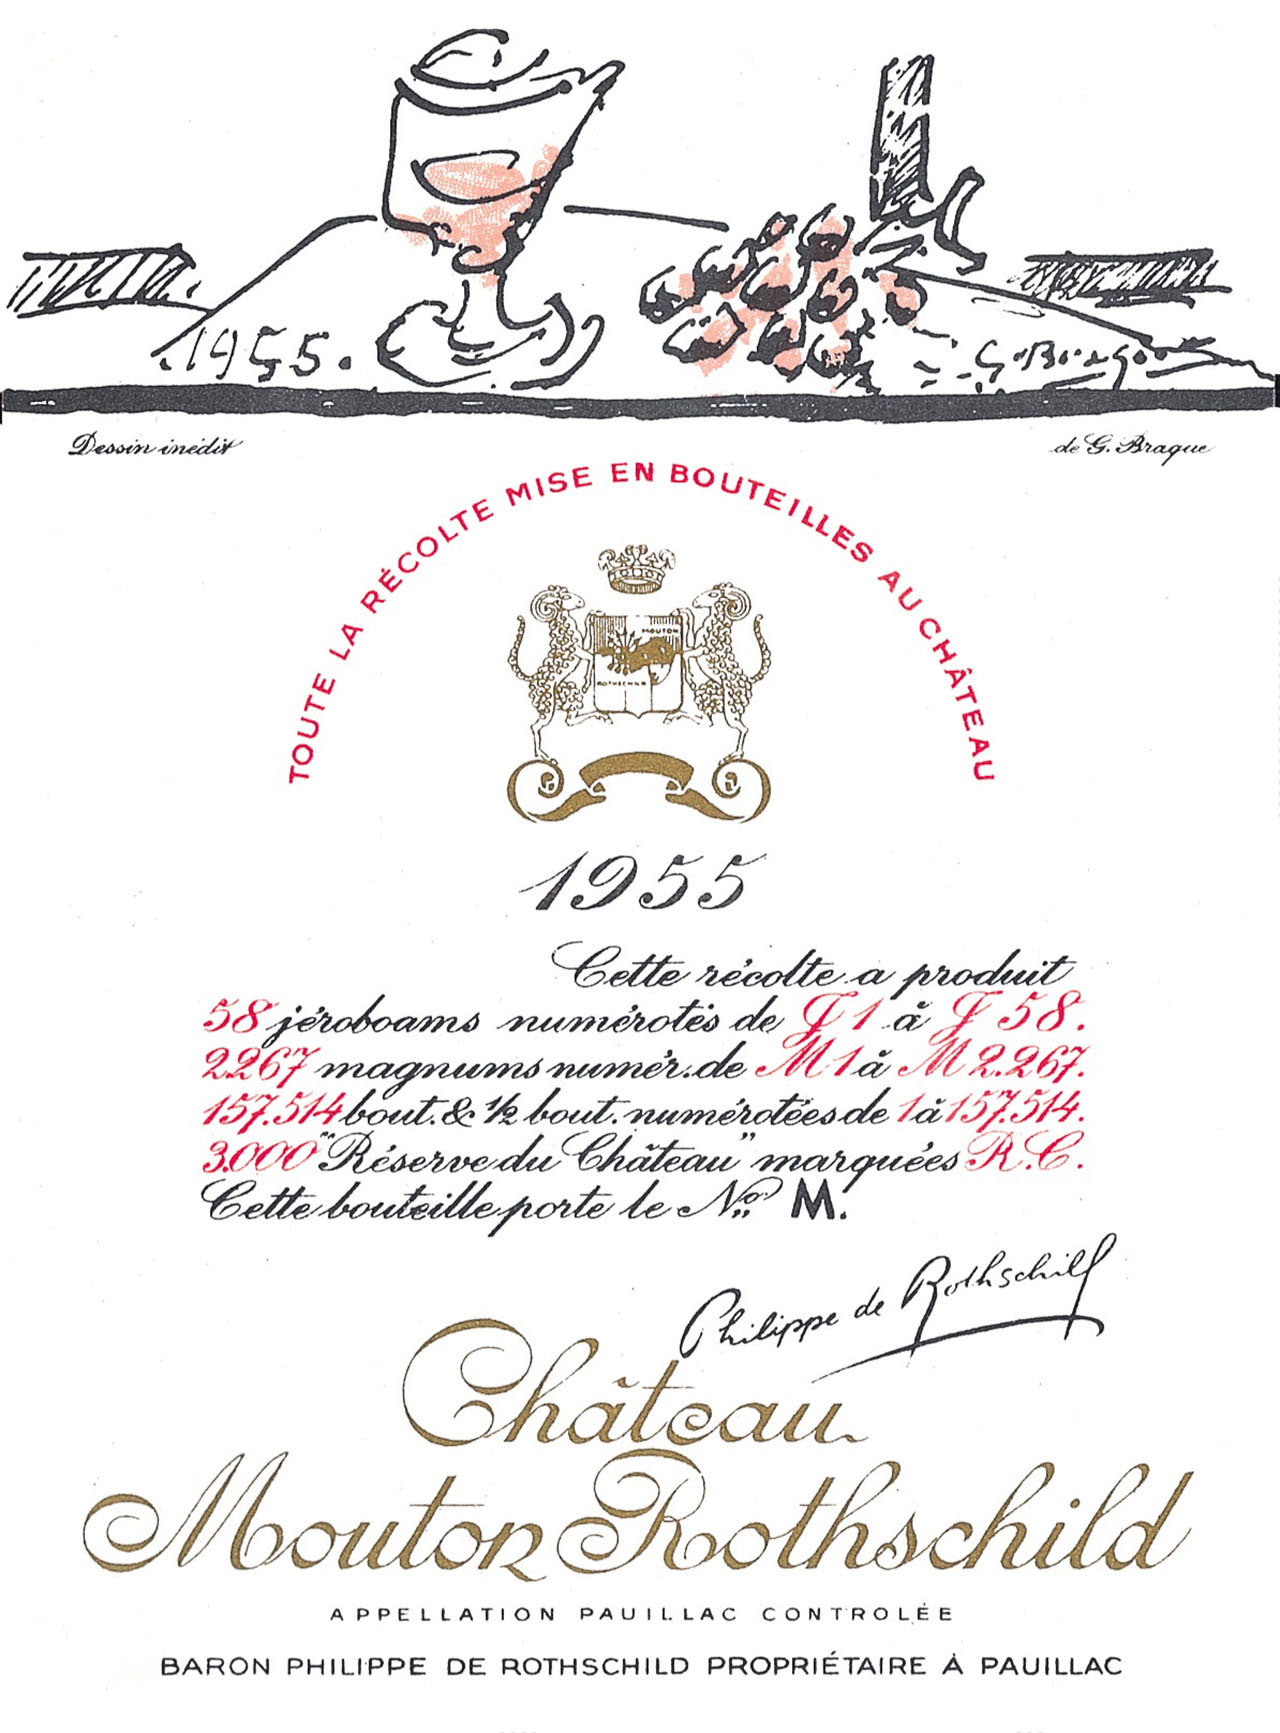 1955.
G. Braque
Dessin inédit
de G. Braque
TOUTE LA RÉCOLTE MISE EN BOUTEILLES AU CHÂTEAU
MOUTON
ROTHSCHILD
1955
Cette récolte a produit
58 jéroboams numérotés de J 1 à J 58.
2267 magnums numér. de M 1 à M 2.267.
157.514 bout. & ½ bout. numérotées de 1 à 157.514.
3.000 "Réserve du Château" marquées R.C.
Cette bouteille porte le No. M.
Philippe de Rothschild
Château
Mouton Rothschild
APPELLATION PAUILLAC CONTROLÉE
BARON PHILIPPE DE ROTHSCHILD PROPRIÉTAIRE À PAUILLAC